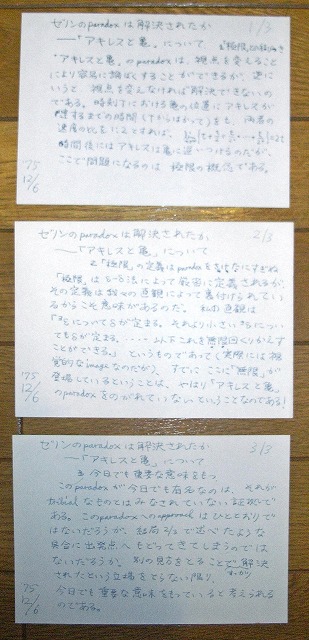 ゼノンのparadoxは解決されたか 1/3
——「アキレスと亀」について
「アキレスと亀」のparadoxは、視点を変えること
により容易に論ばくすることができるが、逆に
いうと 視点を変えなければ解決できないの
である。時刻Tにおける亀の位置にアキレスが
達するまでの時間(Tからはかって)をt、両者の
速度の比をにとすれば、
時間後にはアキレスは亀に追いつけるのだが、
ここで問題になるのは 極限の概念である。
'75
12/6
ゼノンのparadoxは解決されたか 2/3
——「アキレスと亀」について
2 「極限」の定義はparadoxを
「極限」はε-δ法によって厳密に定義されるが、
その定義は我々の直観によって裏付けられてい
るからこそ意味があるのだ。 私の直観は
「εについてδが定まる。それより小さいεについ
てもδが定まる。・・・・以下これを無限回くりかえす
ことができる。」というものであって(実際には視
覚的なimageなのだが)、すでにここに「無限」が
登場しているということは、やはり「アキレスと亀」
のparadoxをのがれていないということなのである!
'75
12/6
ゼノンのparadoxは解決されたか 3/3
——「アキレスと亀」について
3 今日でも重要な意味をもつ
このparadoxが今日でも有名なのは、それが
trivialなものとはみなされていない証拠で
ある。このparadoxへのapproachはひととおりで
はないだろうが、結局2/3で述べたような
具合に出発点へもどってきてしまうのでは
ないだろうか。別の見方をとることで解決
されたという立場をとらない限り、
今日でも重要な意味をもっていると考えられる
のである。
75
12/6